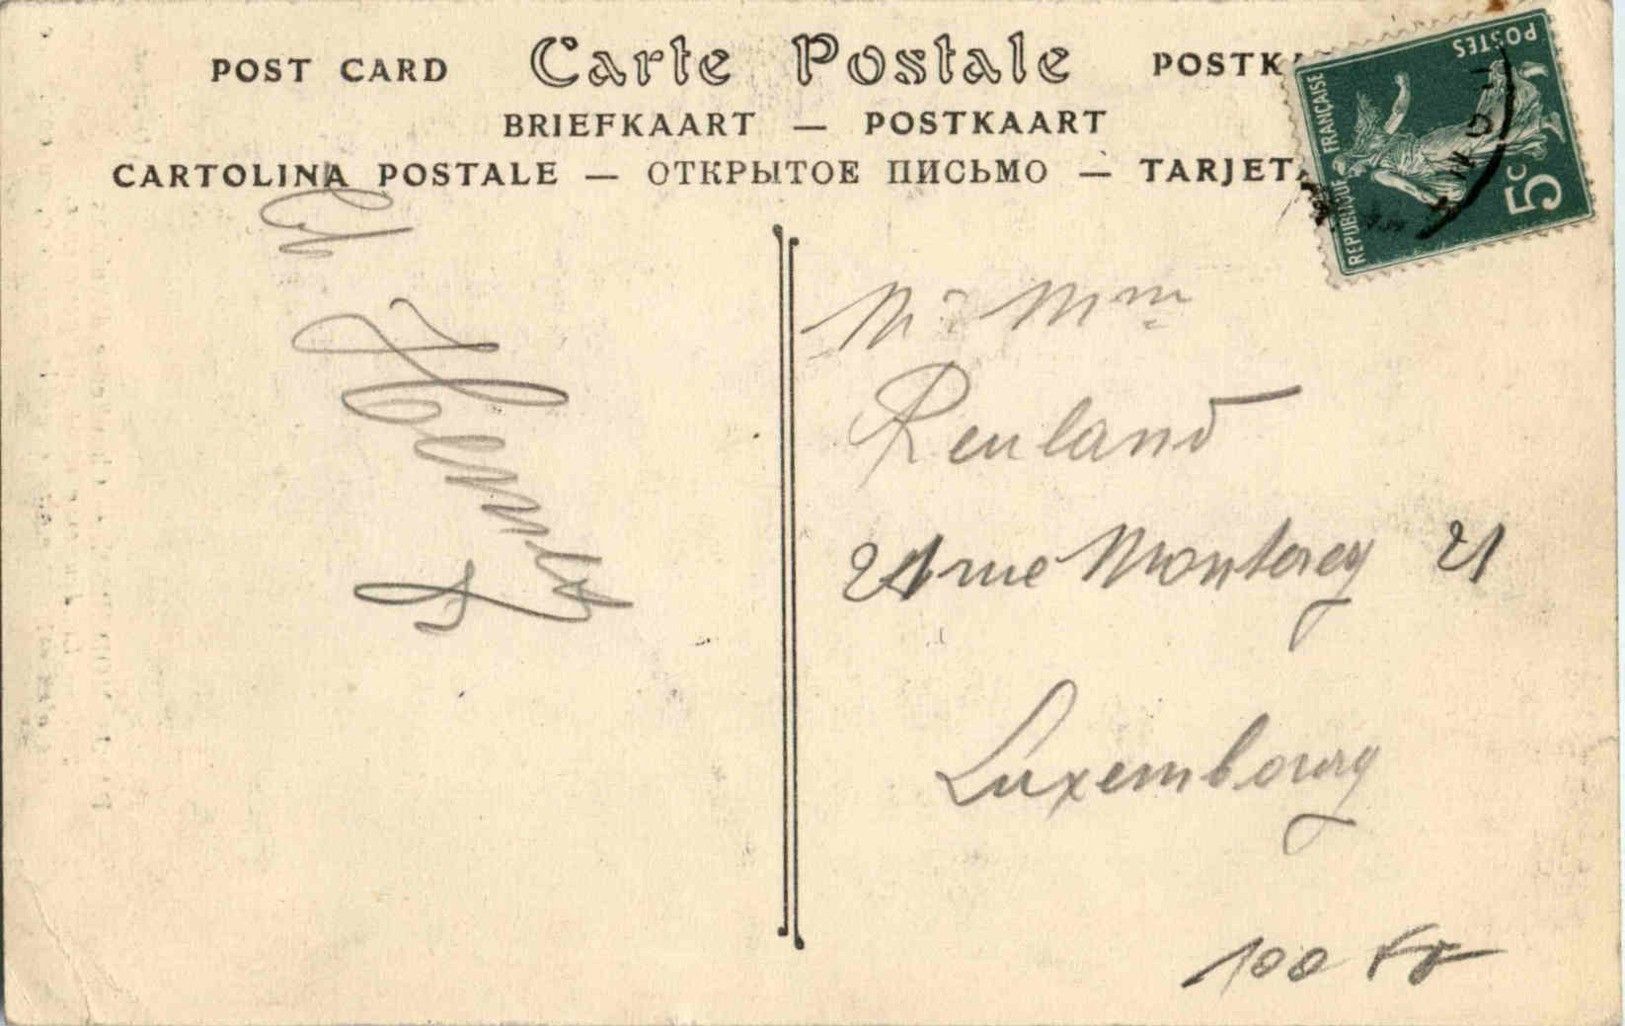 POST CARD Carte Postale
BRIEFKAART — POSTKAART
CARTOLINA POSTALE — ОТКРЫТОЕ ПИСЬМО —
POSTES
REPUBLIQUE FRANÇAISE
5c
Mr Mme
Reuland
21 rue Monterey 21
Luxembourg
100 Fr